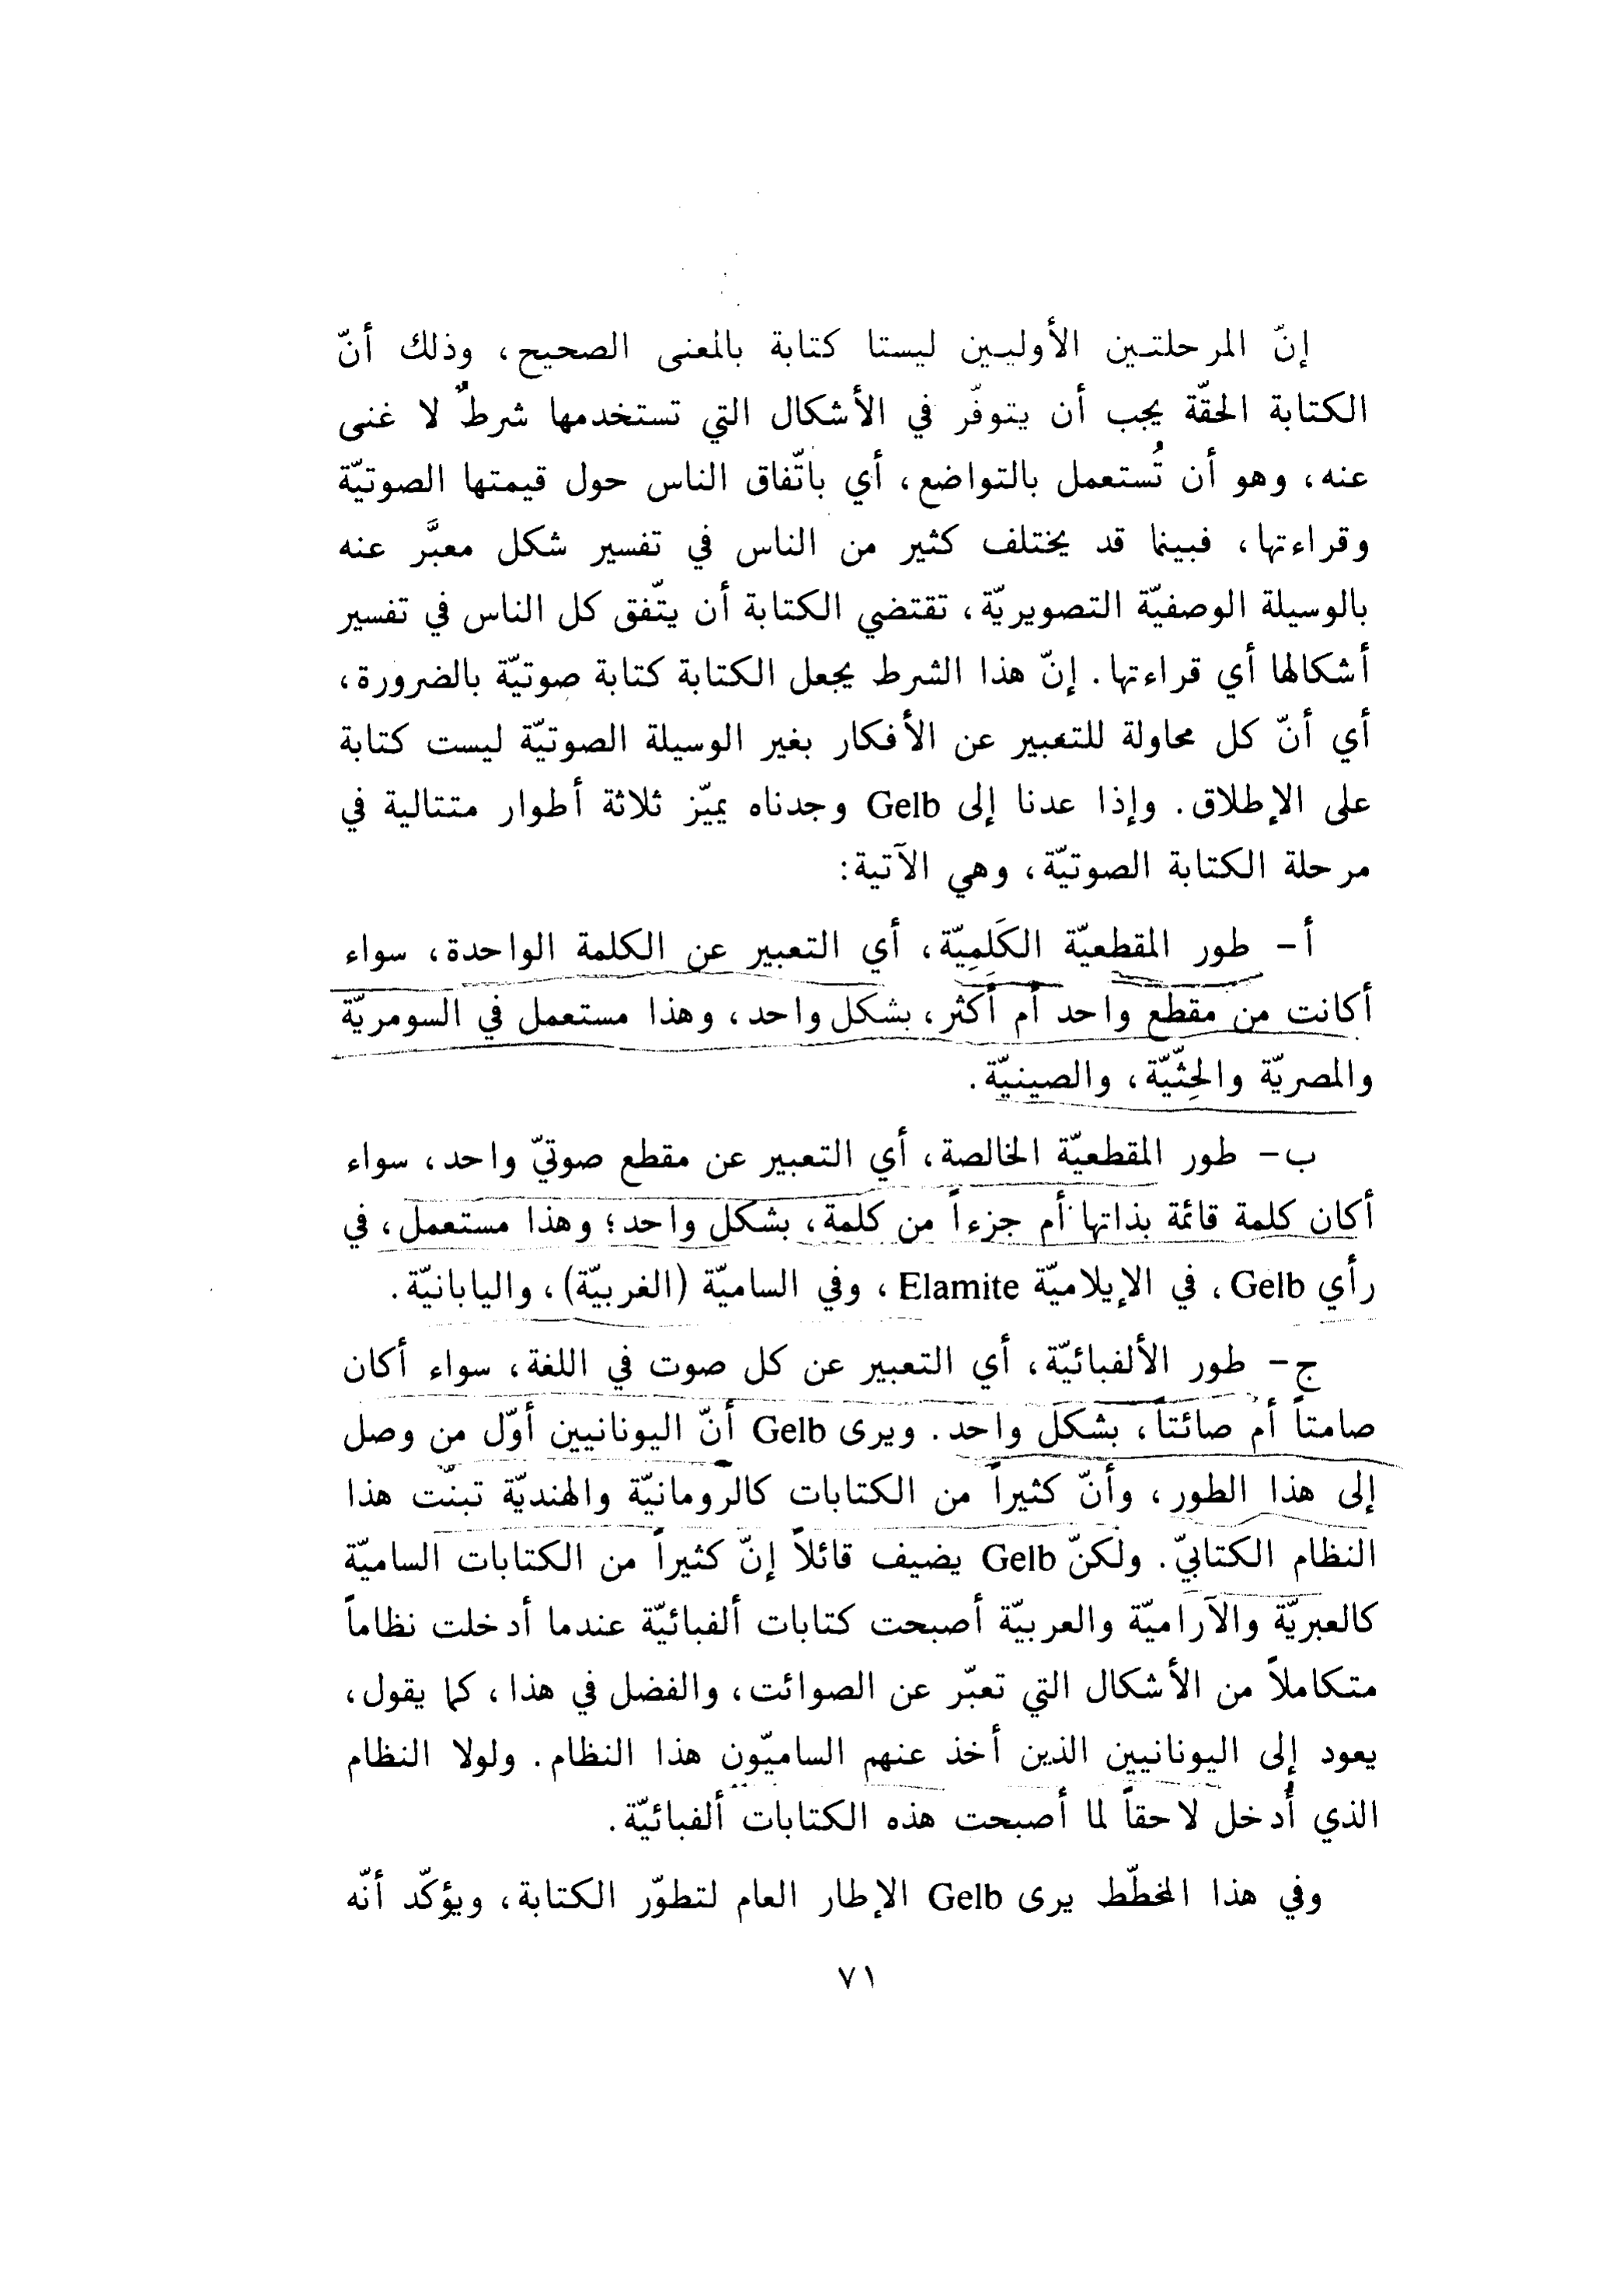 إنّ المرحلتين الأوليين ليستا كتابة بالمعنى الصحيح، وذلك أنّ
الكتابة الحقّة يجب أن يتوفّر في الأشكال التي تستخدمها شرطٌ لا غنى
عنه، وهو أن تُستعمل بالتواضع، أي باتّفاق الناس حول قيمتها الصوتيّة
وقراءتها، فبينما قد يختلف كثير من الناس في تفسير شكل معبَّر عنه
بالوسيلة الوصفيّة التصويريّة، تقتضي الكتابة أن يتّفق كل الناس في تفسير
أشكالها أي قراءتها. إنّ هذا الشرط يجعل الكتابة كتابة صوتيّة بالضرورة،
أي أنّ كل محاولة للتعبير عن الأفكار بغير الوسيلة الصوتيّة ليست كتابة
على الإطلاق. وإذا عدنا إلى Gelb وجدناه يميّز ثلاثة أطوار متتالية في
مرحلة الكتابة الصوتيّة، وهي الآتية:
أ- طور المقطعيّة الكَلِمِيّة، أي التعبير عن الكلمة الواحدة، سواء
أكانت من مقطع واحد أم أكثر، بشكل واحد، وهذا مستعمل في السومريّة
والمصريّة والحِثّيّة، والصينيّة.
ب- طور المقطعيّة الخالصة، أي التعبير عن مقطع صوتيّ واحد، سواء
أكان كلمة قائمة بذاتها أم جزءاً من كلمة، بشكل واحد؛ وهذا مستعمل، في
رأي Gelb، في الإيلاميّة Elamite، وفي الساميّة (الغربيّة)، واليابانيّة.
ج- طور الألفبائيّة، أي التعبير عن كل صوت في اللغة، سواء أكان
صامتاً أم صائتاً، بشكل واحد. ويرى Gelb أنّ اليونانيين أوّل من وصل
إلى هذا الطور، وأنّ كثيراً من الكتابات كالرومانيّة والهنديّة تبنّت هذا
النظام الكتابيّ. ولكنّ Gelb يضيف قائلاً إنّ كثيراً من الكتابات الساميّة
كالعبريّة والآراميّة والعربيّة أصبحت كتابات ألفبائيّة عندما أدخلت نظاماً
متكاملاً من الأشكال التي تعبّر عن الصوائت، والفضل في هذا، كما يقول،
يعود إلى اليونانيين الذين أخذ عنهم الساميّون هذا النظام. ولولا النظام
الذي أُدخل لاحقاً لما أصبحت هذه الكتابات ألفبائيّة.
وفي هذا المخطّط يرى Gelb الإطار العام لتطوّر الكتابة، ويؤكّد أنّه
٧١